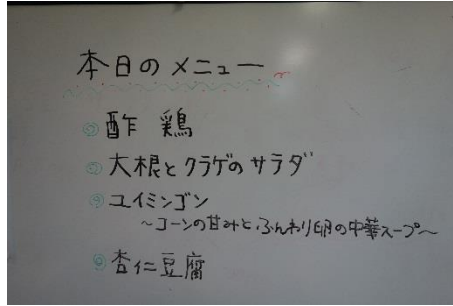 本日のメニュー
◎酢 鶏
◎大根とクラゲのサラダ
◎ユイミンゴン
～コーンの甘みとふんわり卵の中華スープ～
◎杏仁豆腐